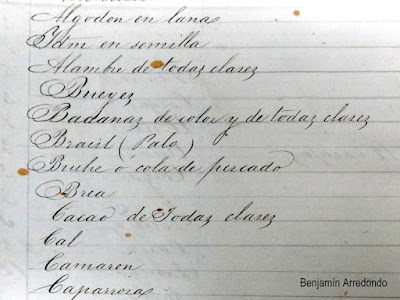 Algodon en lana
Idm en semilla
Alambre de todaz clasez
Bueyez
Badanaz de color y de todaz clasez
Brasil (Palo)
Buche ó cola de pescado
Brea
Cacao de Todaz clasez
Cal
Camarón
Caparrosa
Benjamín Arredondo